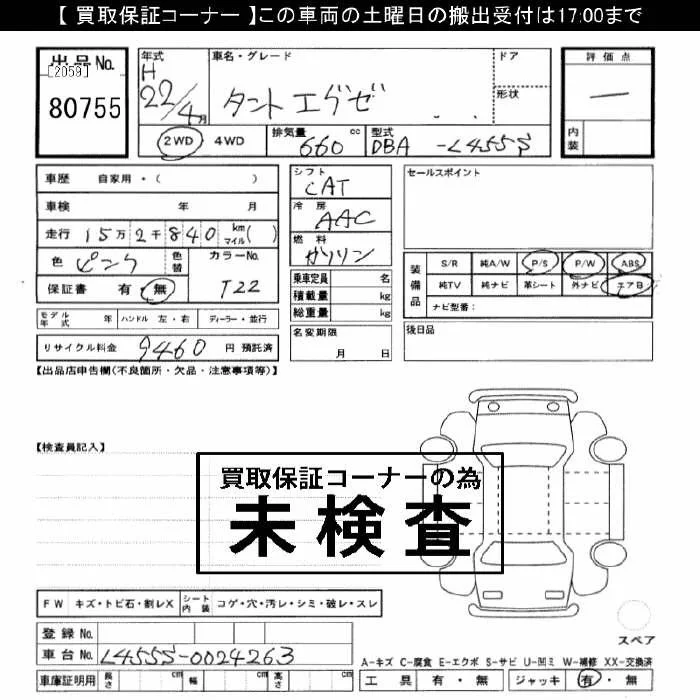 【 買取保証コーナー 】この車両の土曜日の搬出受付は17:00まで
出品No. [2059] 80755
年式 H 22/4月
車名・グレード タント エグゼ
ドア
形状
評価点 —
内装
2WD 4WD 排気量 660 cc 型式 DBA -L455S
車歴 自家用・( )
車検 年 月
走行 15万2千840 km マイル( )
色 ピンク 色替 カラーNo. T22
保証書 有・無
シフト CAT
冷房 AAC
燃料 ガソリン
乗車定員 名
積載量 kg
総重量 kg
セールスポイント
装備品 S/R 純A/W P/S P/W ABS
純TV 純ナビ 革シート 外ナビ エアB
ナビ型番:
モデル年式 年 ハンドル 左・右 ディーラー・並行
リサイクル料金 9460 円 預託済
名変期限 月 日
後日品
【出品店申告欄(不良箇所・欠品・注意事項等)】
【検査員記入】
買取保証コーナーの為
未検査
FW キズ・トビ石・割レX シート内装 コゲ・穴・汚レ・シミ・破レ・スレ
スペア
登録No.
車台No. L455S-0024263
車庫証明用 長さ cm 幅 cm 高さ cm
A-キズ C-腐食 E-エクボ S-サビ U-凹ミ W-補修 XX-交換済
工具 有・無 ジャッキ 有・無